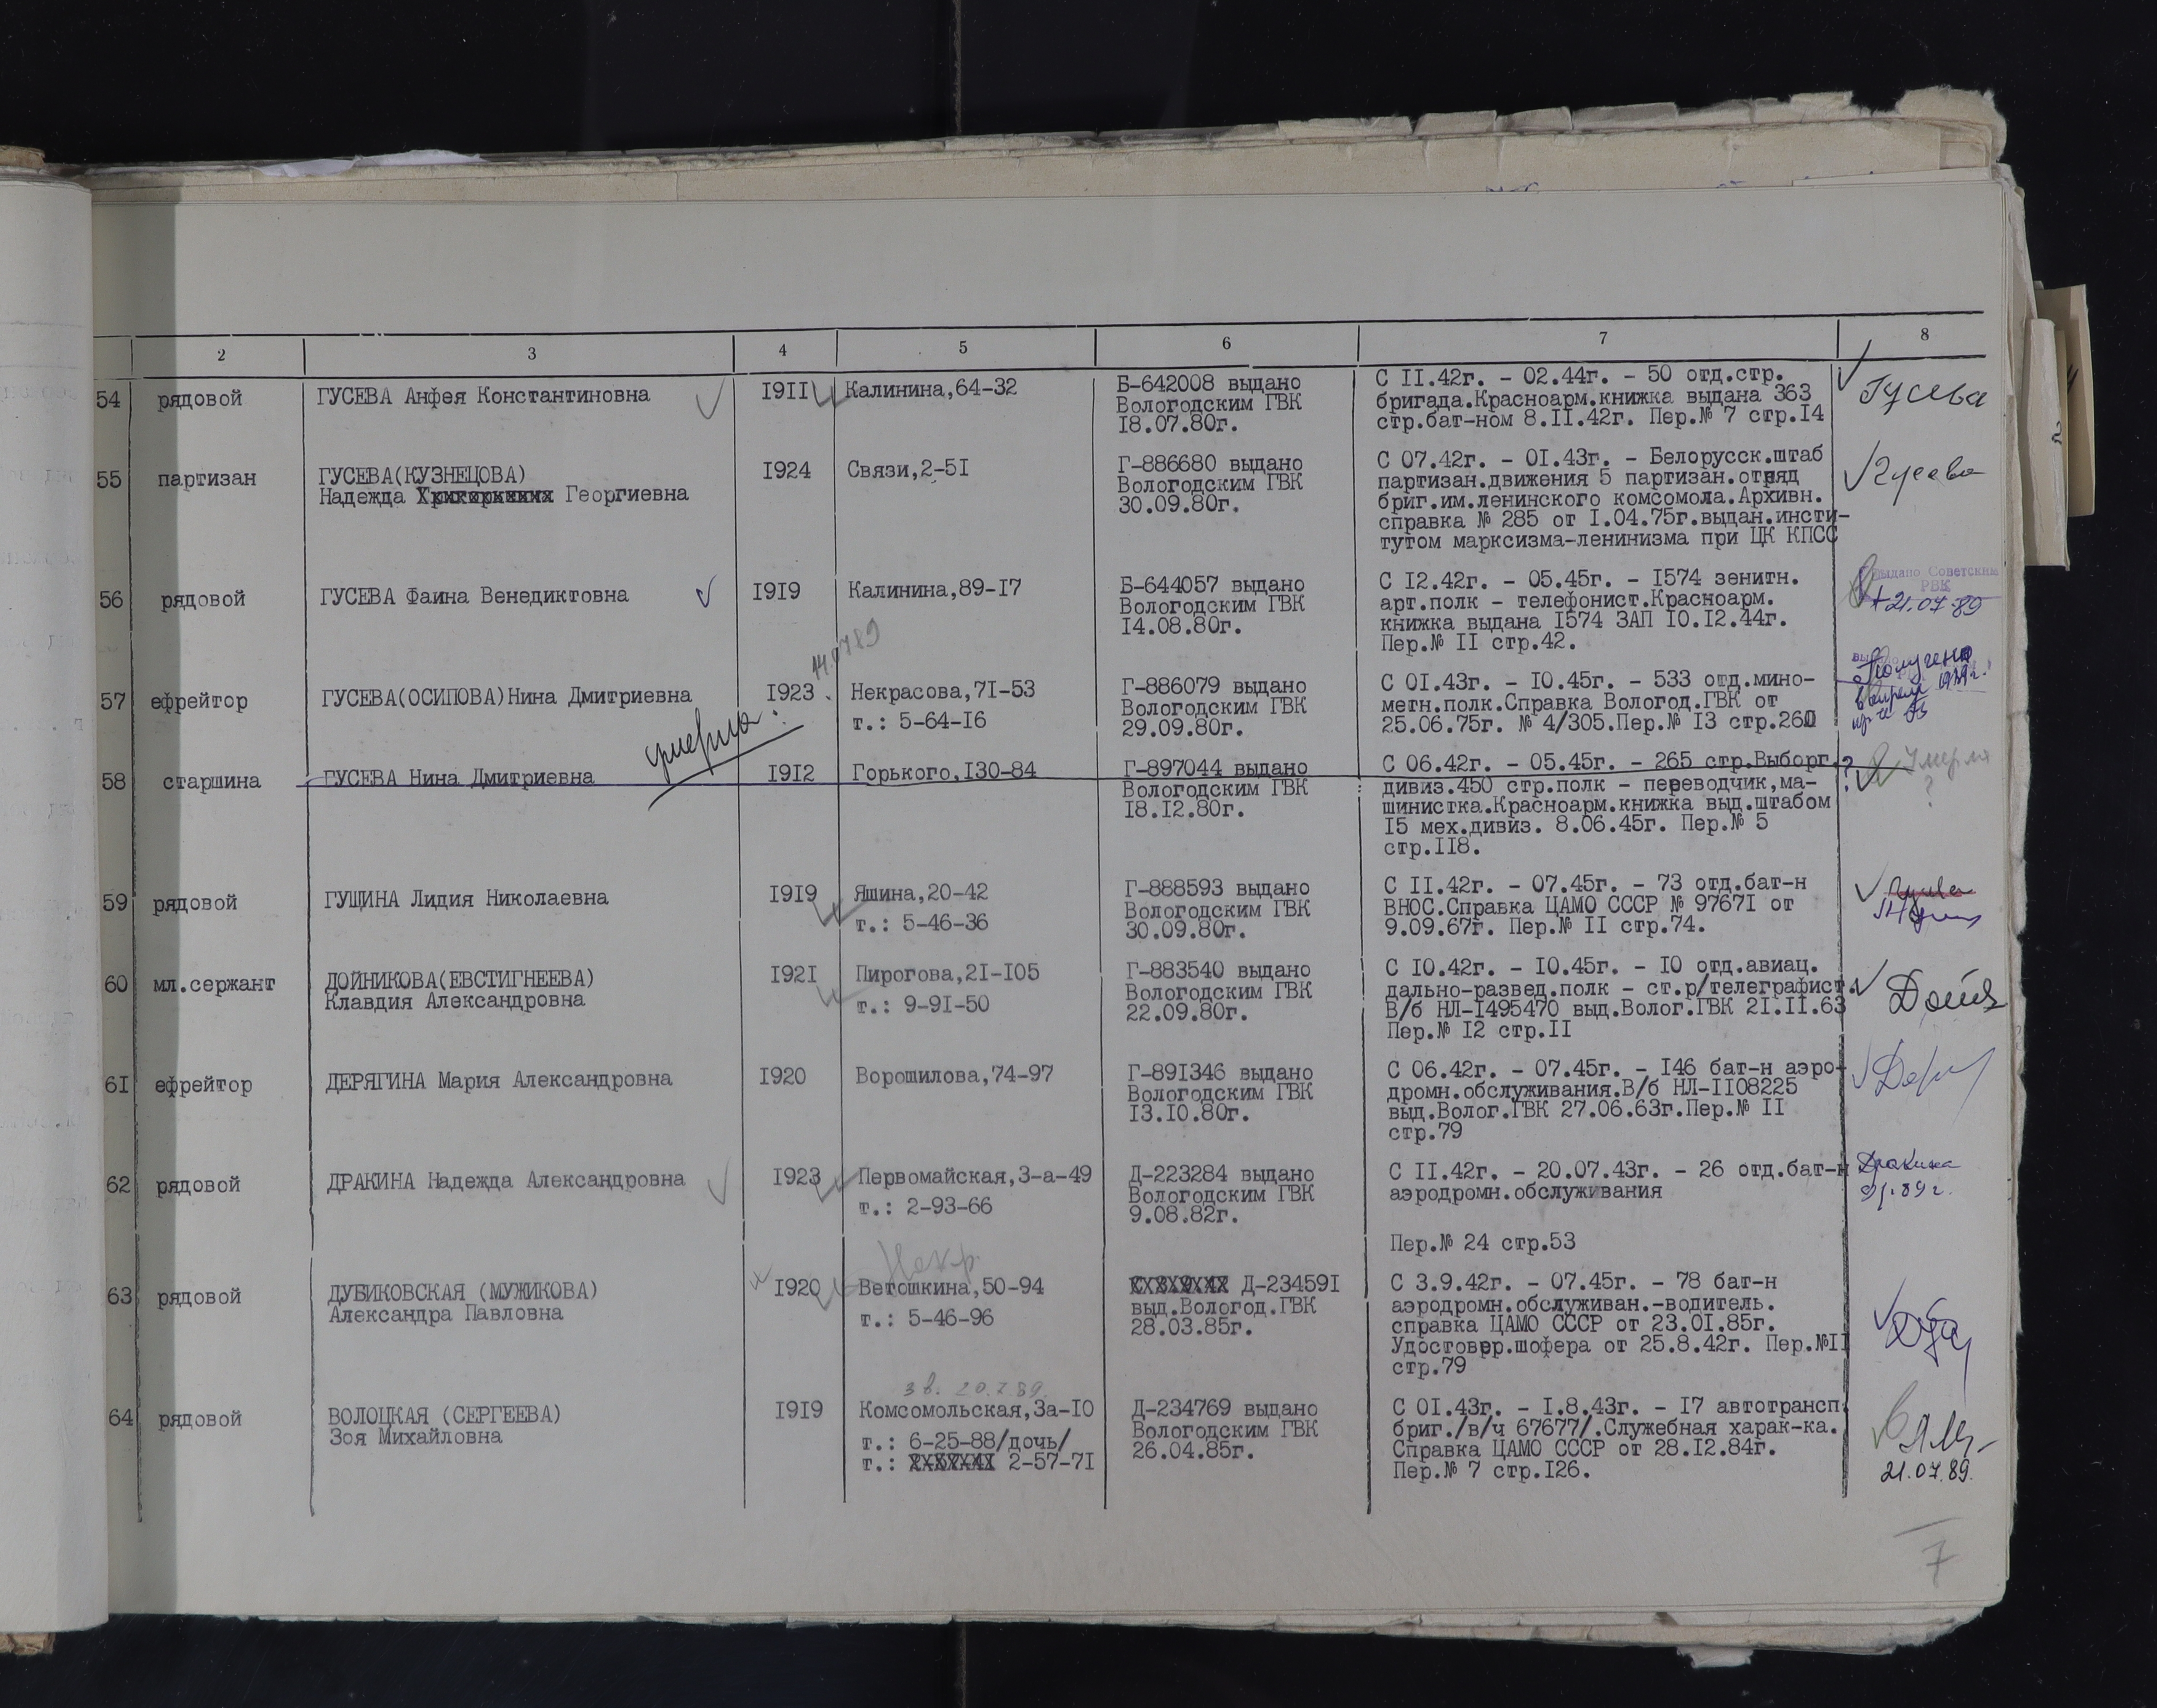 2 3 4 5 6 7 8
54 рядовой ГУСЕВА Анфея Константиновна 1911 Калинина,64-32 Б-642008 выдано С 11.42г. - 02.44г. - 50 отд.стр. Гусева
Вологодским ГВК бригада.Красноарм.книжка выдана 363
18.07.80г. стр.бат-ном 8.11.42г. Пер.№ 7 стр.14
55 партизан ГУСЕВА(КУЗНЕЦОВА) 1924 Связи,2-51 Г-886680 выдано С 07.42г. - 01.43г. - Белорусск.штаб Гусева
Надежда Георгиевна Вологодским ГВК партизан.движения 5 партизан.отряд
30.09.80г. бриг.им.ленинского комсомола.Архивн.
справка № 285 от 1.04.75г.выдан.инсти-
тутом марксизма-ленинизма при ЦК КПСС
56 рядовой ГУСЕВА Фаина Венедиктовна 1919 Калинина,89-17 Б-644057 выдано С 12.42г. - 05.45г. - 1574 зенитн. Выдано Советским
РВК
Вологодским ГВК арт.полк - телефонист.Красноарм. 21.07.89
14.08.80г. книжка выдана 1574 ЗАП 10.12.44г.
Пер.№ 11 стр.42.
57 ефрейтор ГУСЕВА(ОСИПОВА)Нина Дмитриевна 1923 Некрасова,71-53 Г-886079 выдано С 01.43г. - 10.45г. - 533 отд.мино- Получено
т.: 5-64-16 Вологодским ГВК метн.полк.Справка Вологод.ГВК от в апреле
29.09.80г. 25.06.75г. № 4/305.Пер.№ 13 стр.260
умерла
58 старшина ГУСЕВА Нина Дмитриевна 1912 Горького,130-84 Г-897044 выдано С 06.42г. - 05.45г. - 265 стр.Выборг. ? Умерла
Вологодским ГВК дивиз.450 стр.полк - переводчик,ма- ?
18.12.80г. шинистка.Красноарм.книжка выд.штабом
15 мех.дивиз. 8.06.45г. Пер.№ 5
стр.118.
59 рядовой ГУЩИНА Лидия Николаевна 1919 Яшина,20-42 Г-888593 выдано С 11.42г. - 07.45г. - 73 отд.бат-н
т.: 5-46-36 Вологодским ГВК ВНОС.Справка ЦАМО СССР № 97671 от
30.09.80г. 9.09.67г. Пер.№ 11 стр.74.
60 мл.сержант ДОЙНИКОВА(ЕВСТИГНЕЕВА) 1921 Пирогова,21-105 Г-883540 выдано С 10.42г. - 10.45г. - 10 отд.авиац.
Клавдия Александровна т.: 9-91-50 Вологодским ГВК дально-развед.полк - ст.р/телеграфист.
22.09.80г. В/б НЛ-1495470 выд.Волог.ГВК 21.11.63
Пер.№ 12 стр.11
61 ефрейтор ДЕРЯГИНА Мария Александровна 1920 Ворошилова,74-97 Г-891346 выдано С 06.42г. - 07.45г. - 146 бат-н аэро-
Вологодским ГВК дромн.обслуживания.В/б НЛ-1108225
13.10.80г. выд.Волог.ГВК 27.06.63г.Пер.№ 11
стр.79
62 рядовой ДРАКИНА Надежда Александровна 1923 Первомайская,3-а-49 Д-223284 выдано С 11.42г. - 20.07.43г. - 26 отд.бат-н Дракина
т.: 2-93-66 Вологодским ГВК аэродромн.обслуживания
9.08.82г.
Пер.№ 24 стр.53
63 рядовой ДУБИКОВСКАЯ (МУЖИКОВА) 1920 Ветошкина,50-94 Д-234591 С 3.9.42г. - 07.45г. - 78 бат-н
Александра Павловна т.: 5-46-96 выд.Вологод.ГВК аэродромн.обслуживан.-водитель.
28.03.85г. справка ЦАМО СССР от 23.01.85г.
Удостовер.шофера от 25.8.42г. Пер.№11
стр.79
зв. 20.7.89
64 рядовой ВОЛОЦКАЯ (СЕРГЕЕВА) 1919 Комсомольская,3а-10 Д-234769 выдано С 01.43г. - 1.8.43г. - 17 автотрансп.
Зоя Михайловна т.: 6-25-88/дочь/ Вологодским ГВК бриг./в/ч 67677/.Служебная харак-ка.
т.: 2-57-71 26.04.85г. Справка ЦАМО СССР от 28.12.84г.
Пер.№ 7 стр.126. 21.07.89.
7